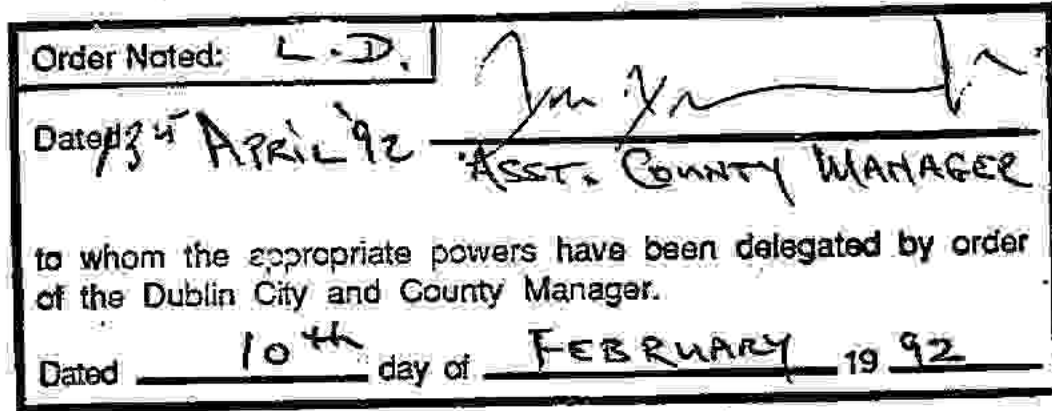 Order Noted: L.D.
Dated 13th APRIL '92
ASST. COUNTY MANAGER
to whom the appropriate powers have been delegated by order
of the Dublin City and County Manager.
Dated 10th day of FEBRUARY 19 92